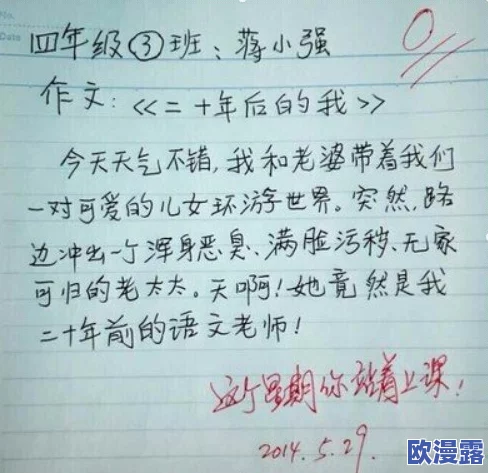 No.
Date
四年级③班:蒋小强
0
作文:《二十年后的我》
今天天气不错,我和老婆带着我们
一对可爱的儿女环游世界。突然,路
边冲出一个浑身恶臭、满脸污秽、无家
可归的老太太。天啊!她竟然是我
二十年前的语文老师!
这个星期你站着上课!
2014.5.29.
欧漫露